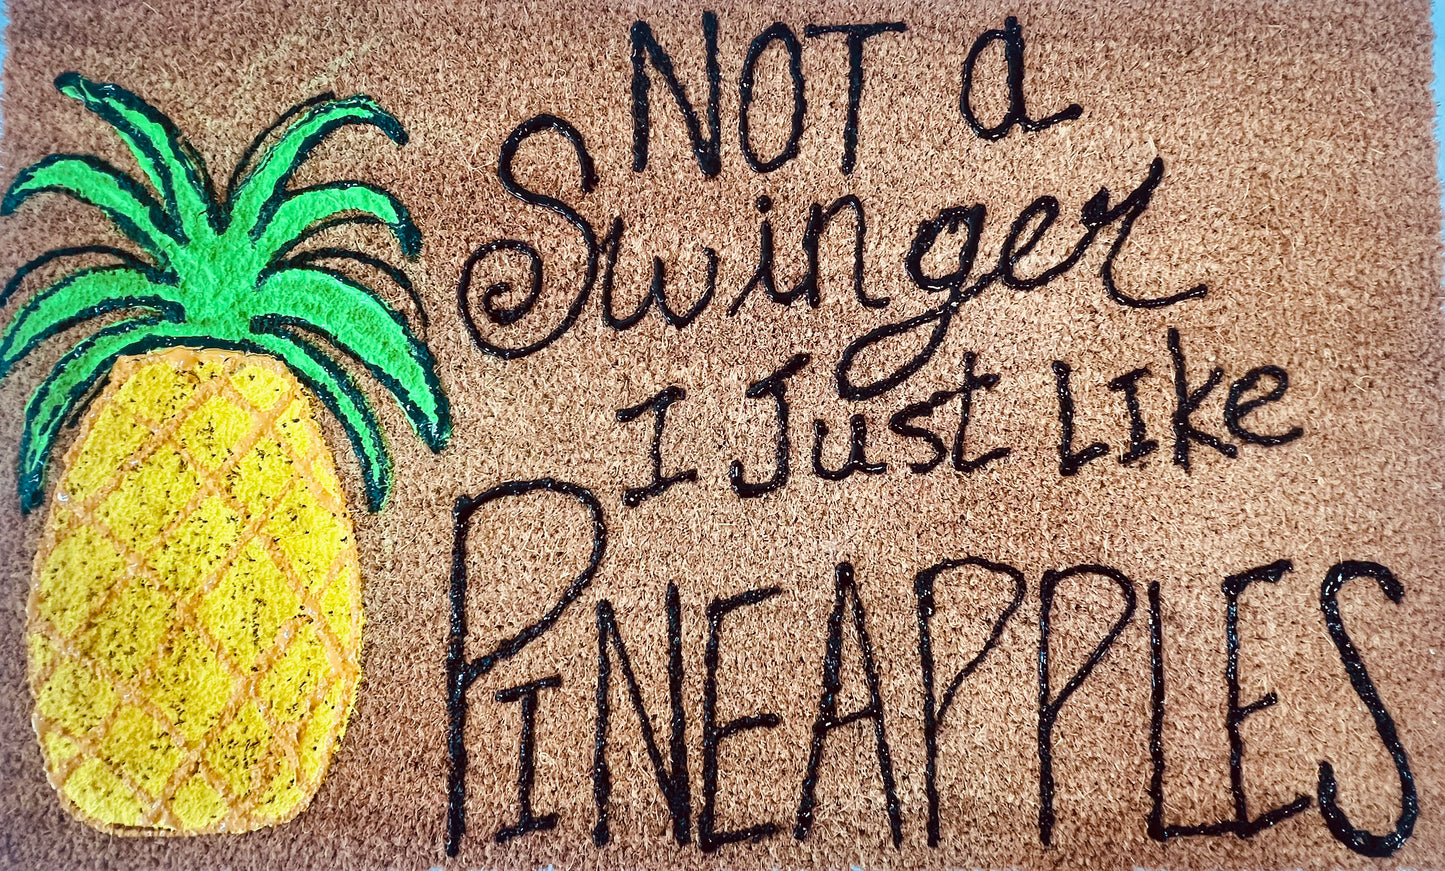 NOT a
Swinger
I Just LIke
PINEAPPLES